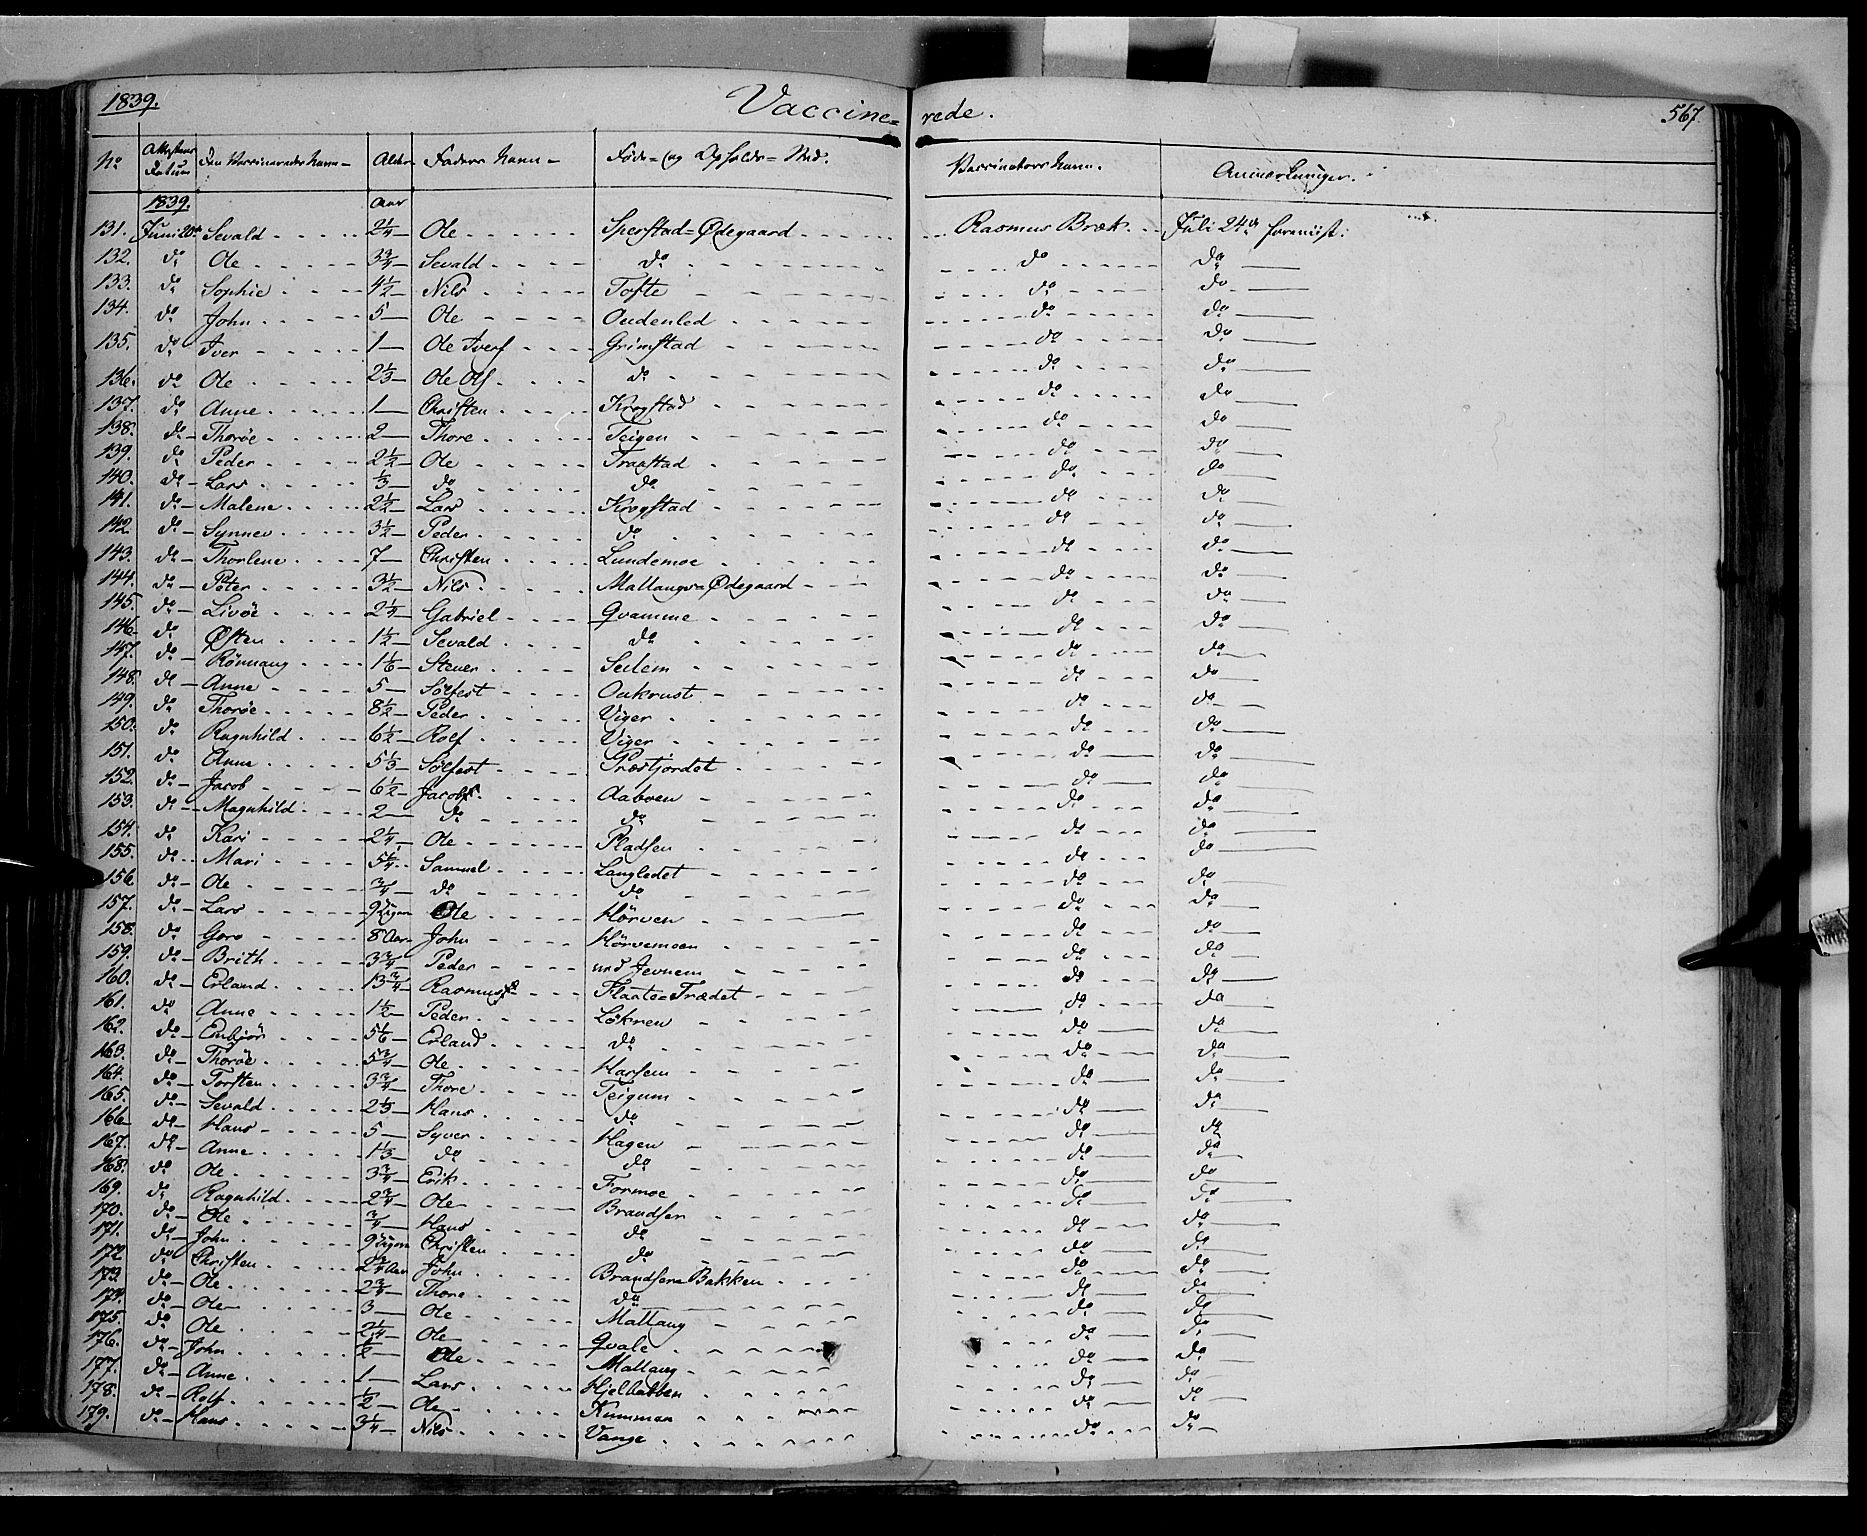 1839. Vaccine= rede. 567.
No Attestens Datum Den Vaccineredes Navn - Alder Faders Navn - Føde= og Opholds=Sted. Vaccinateurs Navn. Anmærkninger.
1839. Aar
131. Juni 20de Sevald 2¼ Ole Sperstad=Ødegaard Rasmus Bræk Juli 24de foreviist.
132. do Ole 3¾ Sevald do do do
133. do Sophie 4½ Nils Tofte do do
134. do John 5 Ole Oudenled do do
135. do Iver 1 OleIvers Grimstad do do
136. do Ole 2⅓ Ole Ols do do do
137. do Anne 1 Christen Krogstad do do
138. do Thorøe 2 Thore Teigen do do
139. do Peder 2½ Ole Traastad do do
140. do Lars ⅓ do do do do
141. do Malene 2½ Lars Krogstad do do
142. do Synnev 3½ Peder do do do
143. do Thorlene 7 Christen Lundemoe do do
144. do Peter 3½ Nils Mallangs=Ødegaard do do
145. do Livöe 2¼ Gabriel Qvamme do do
146. do Østen 1½ Sevald do do do
147. do Rönnaug 1⅙ Stener Selem do do
148. do Anne 5 Sölfest Oukrust do do
149. do Thoröe 8½ Peder Viger do do
150. do Ragnhild 6½ Rolf Viger do do
151. do Anne 5⅓ Sölfest Præstjordet do do
152. do Jacob 6½ Jacob Aaboen do do
153. do Magnhild 2 do do do do
154. do Kari 2¼ Ole Pladsen do do
155. do Mari 5¼ Samuel Langledet do do
156 do Ole ¾ do do do do
157. do Lars 9 Ugor Ole Hörven do do
158. do Goro 8 Aar John Hörvemoen do do
159. do Brith 3¾ Peder ned Jevnem do do
160. do Erland 13¾ Rasmus Flaate=Trædet do do
161. do Anne 1½ Peder Lökren do do
162. do Embjör 5⅙ Erland do do do
163. do Thoröe 5¾ Ole Harsem do do
164. do Torsten 3¾ Thore Teigum do do
165. do Sevald 2⅓ Hans do do do
166 do Hans 5 Syver Hagen do do
167. do Anne 1⅓ do do do do
168. do Ole 3¾ Erik Formoe do do
169. do Ragnhild 2¾ Ole Brandsen do do
170. do Ole ¾ Hans do do do
171. do John 9 Ugor Christen do do do
172 do Christen 2¾ Aar John Brandsens Bakken do do
173 do Ole 2¾ Thore do do do
174. do Ole 3 Ole Mallang do do
175. do Ole 2¼ Ole Qvale do do
176. do John 2 Ole Mallang do do
177. do Anne 1 Lars Hjelbakken do do
178. do Rolf ½ Ole Kummen do do
179. do Hans 3¼ Nils Vange do do